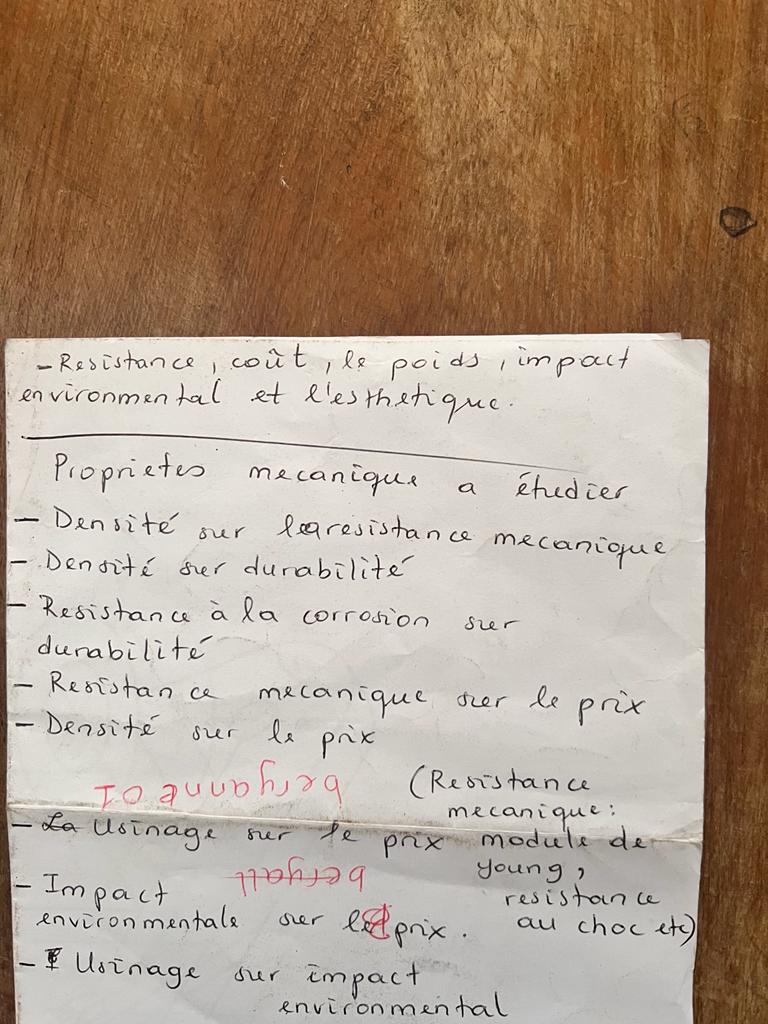 - Resistance, coût, le poids, impact
environmental et l'esthetique.
Proprietes mecanique a étudier
- Densité sur la resistance mecanique
- Densité sur durabilité
- Resistance à la corrosion sur
durabilité
- Resistance mecanique sur le prix
- Densité sur le prix
beryanne 01
(Resistance
mecanique:
- La Usinage sur le prix
module de
young,
beryall
- Impact
resistance
environmentale sur le prix.
au choc etc)
- Usinage sur impact
environmental